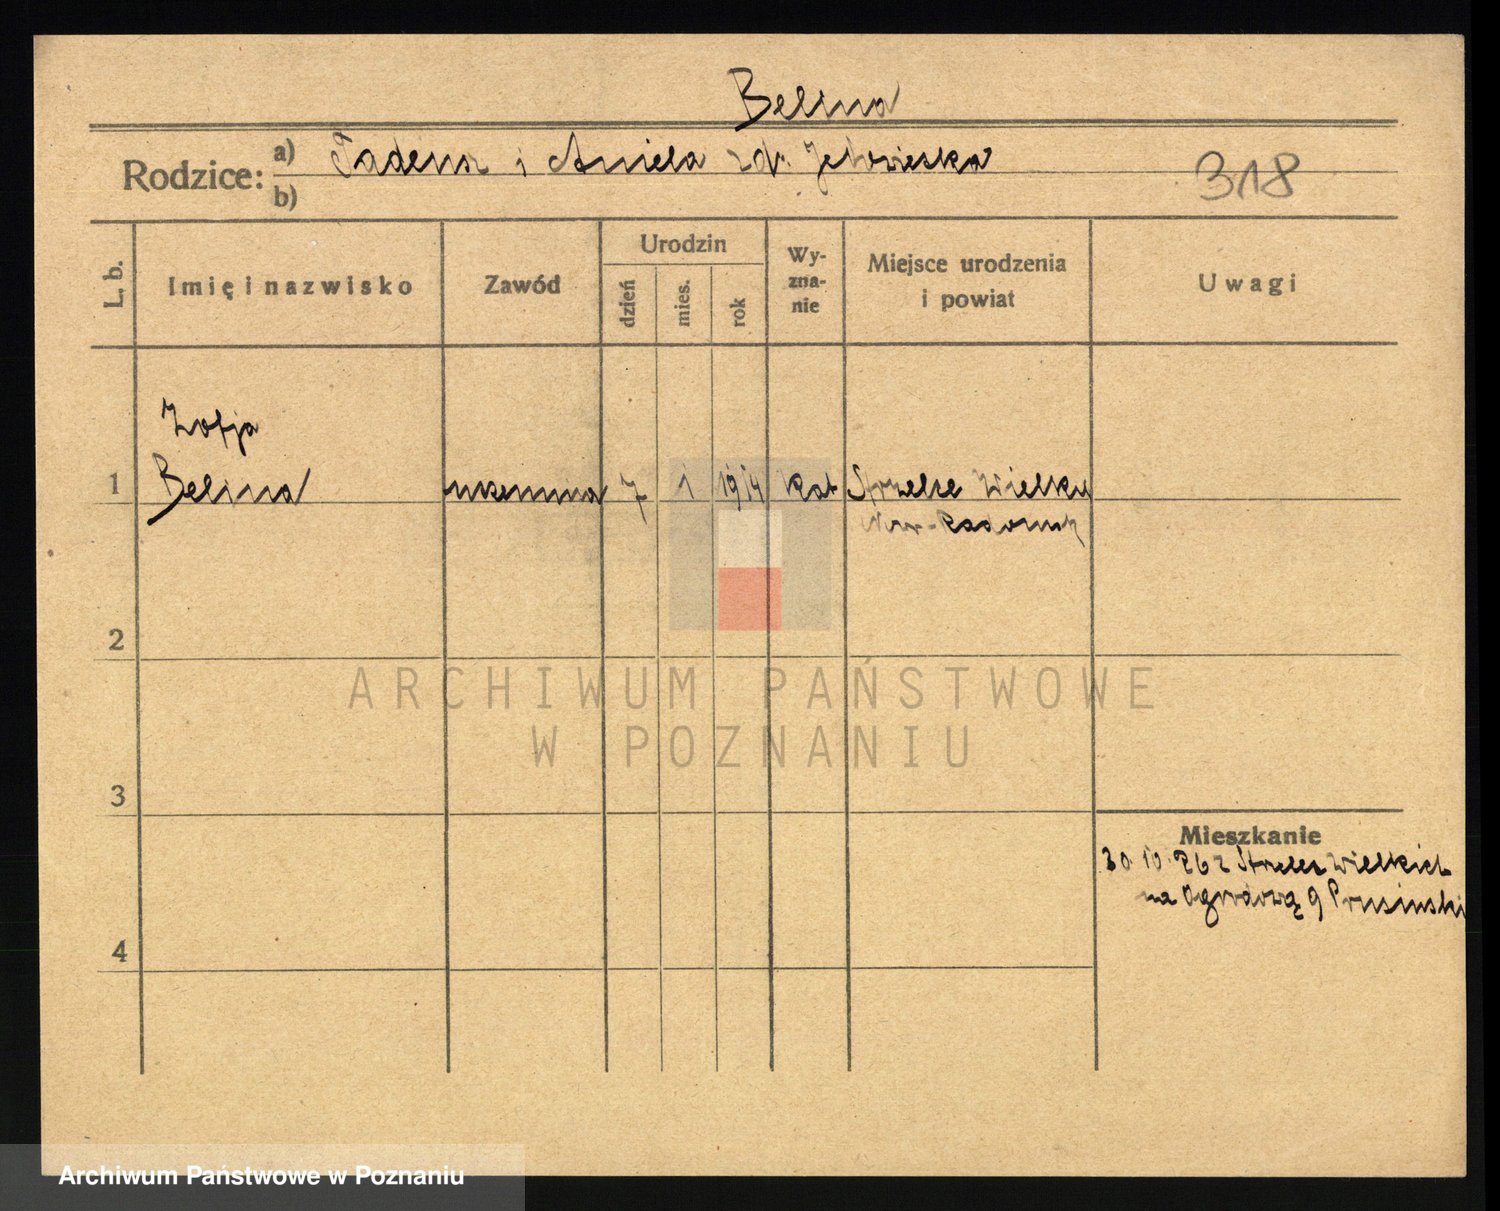 Belina
Rodzice: a) Tadeusz i Aniela zd.
b)
318
L. b.
Imię i nazwisko
Zawód
Urodzin
dzień
mies.
rok
Wy-
zna-
nie
Miejsce urodzenia
i powiat
Uwagi
Zofja
1 Belina uczennica 7 1 1914 kat Strzelce Wielkie
Now-Radomsk
2
3
4
Mieszkanie
30.10.26 z Strzelec Wielkich
na Ogrodową 9 Prusinski
ARCHIWUM PAŃSTWOWE
W POZNANIU
Archiwum Państwowe w Poznaniu